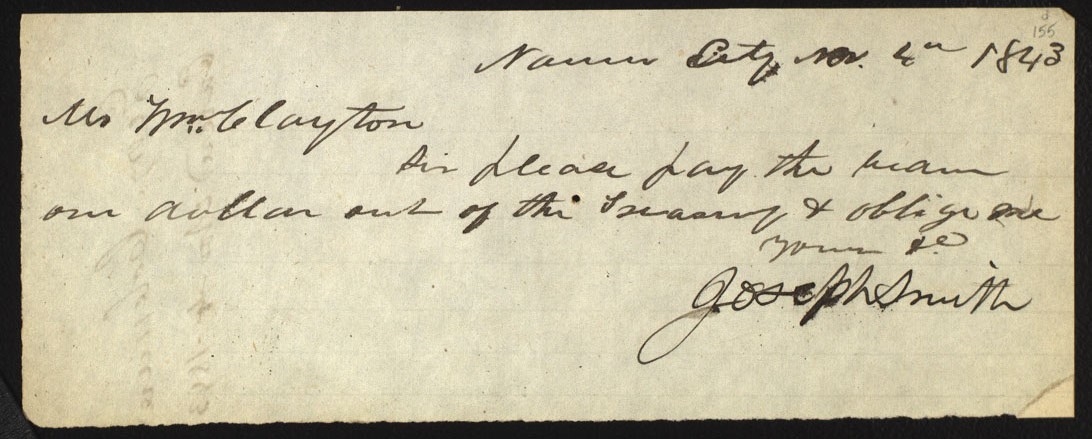 155
Nauvoo City, Nov. 4th 1843
Mr Wm. Clayton
Sir please pay the bearer
one dollar out of the Treasury & oblige me
yours &c
Joseph Smith